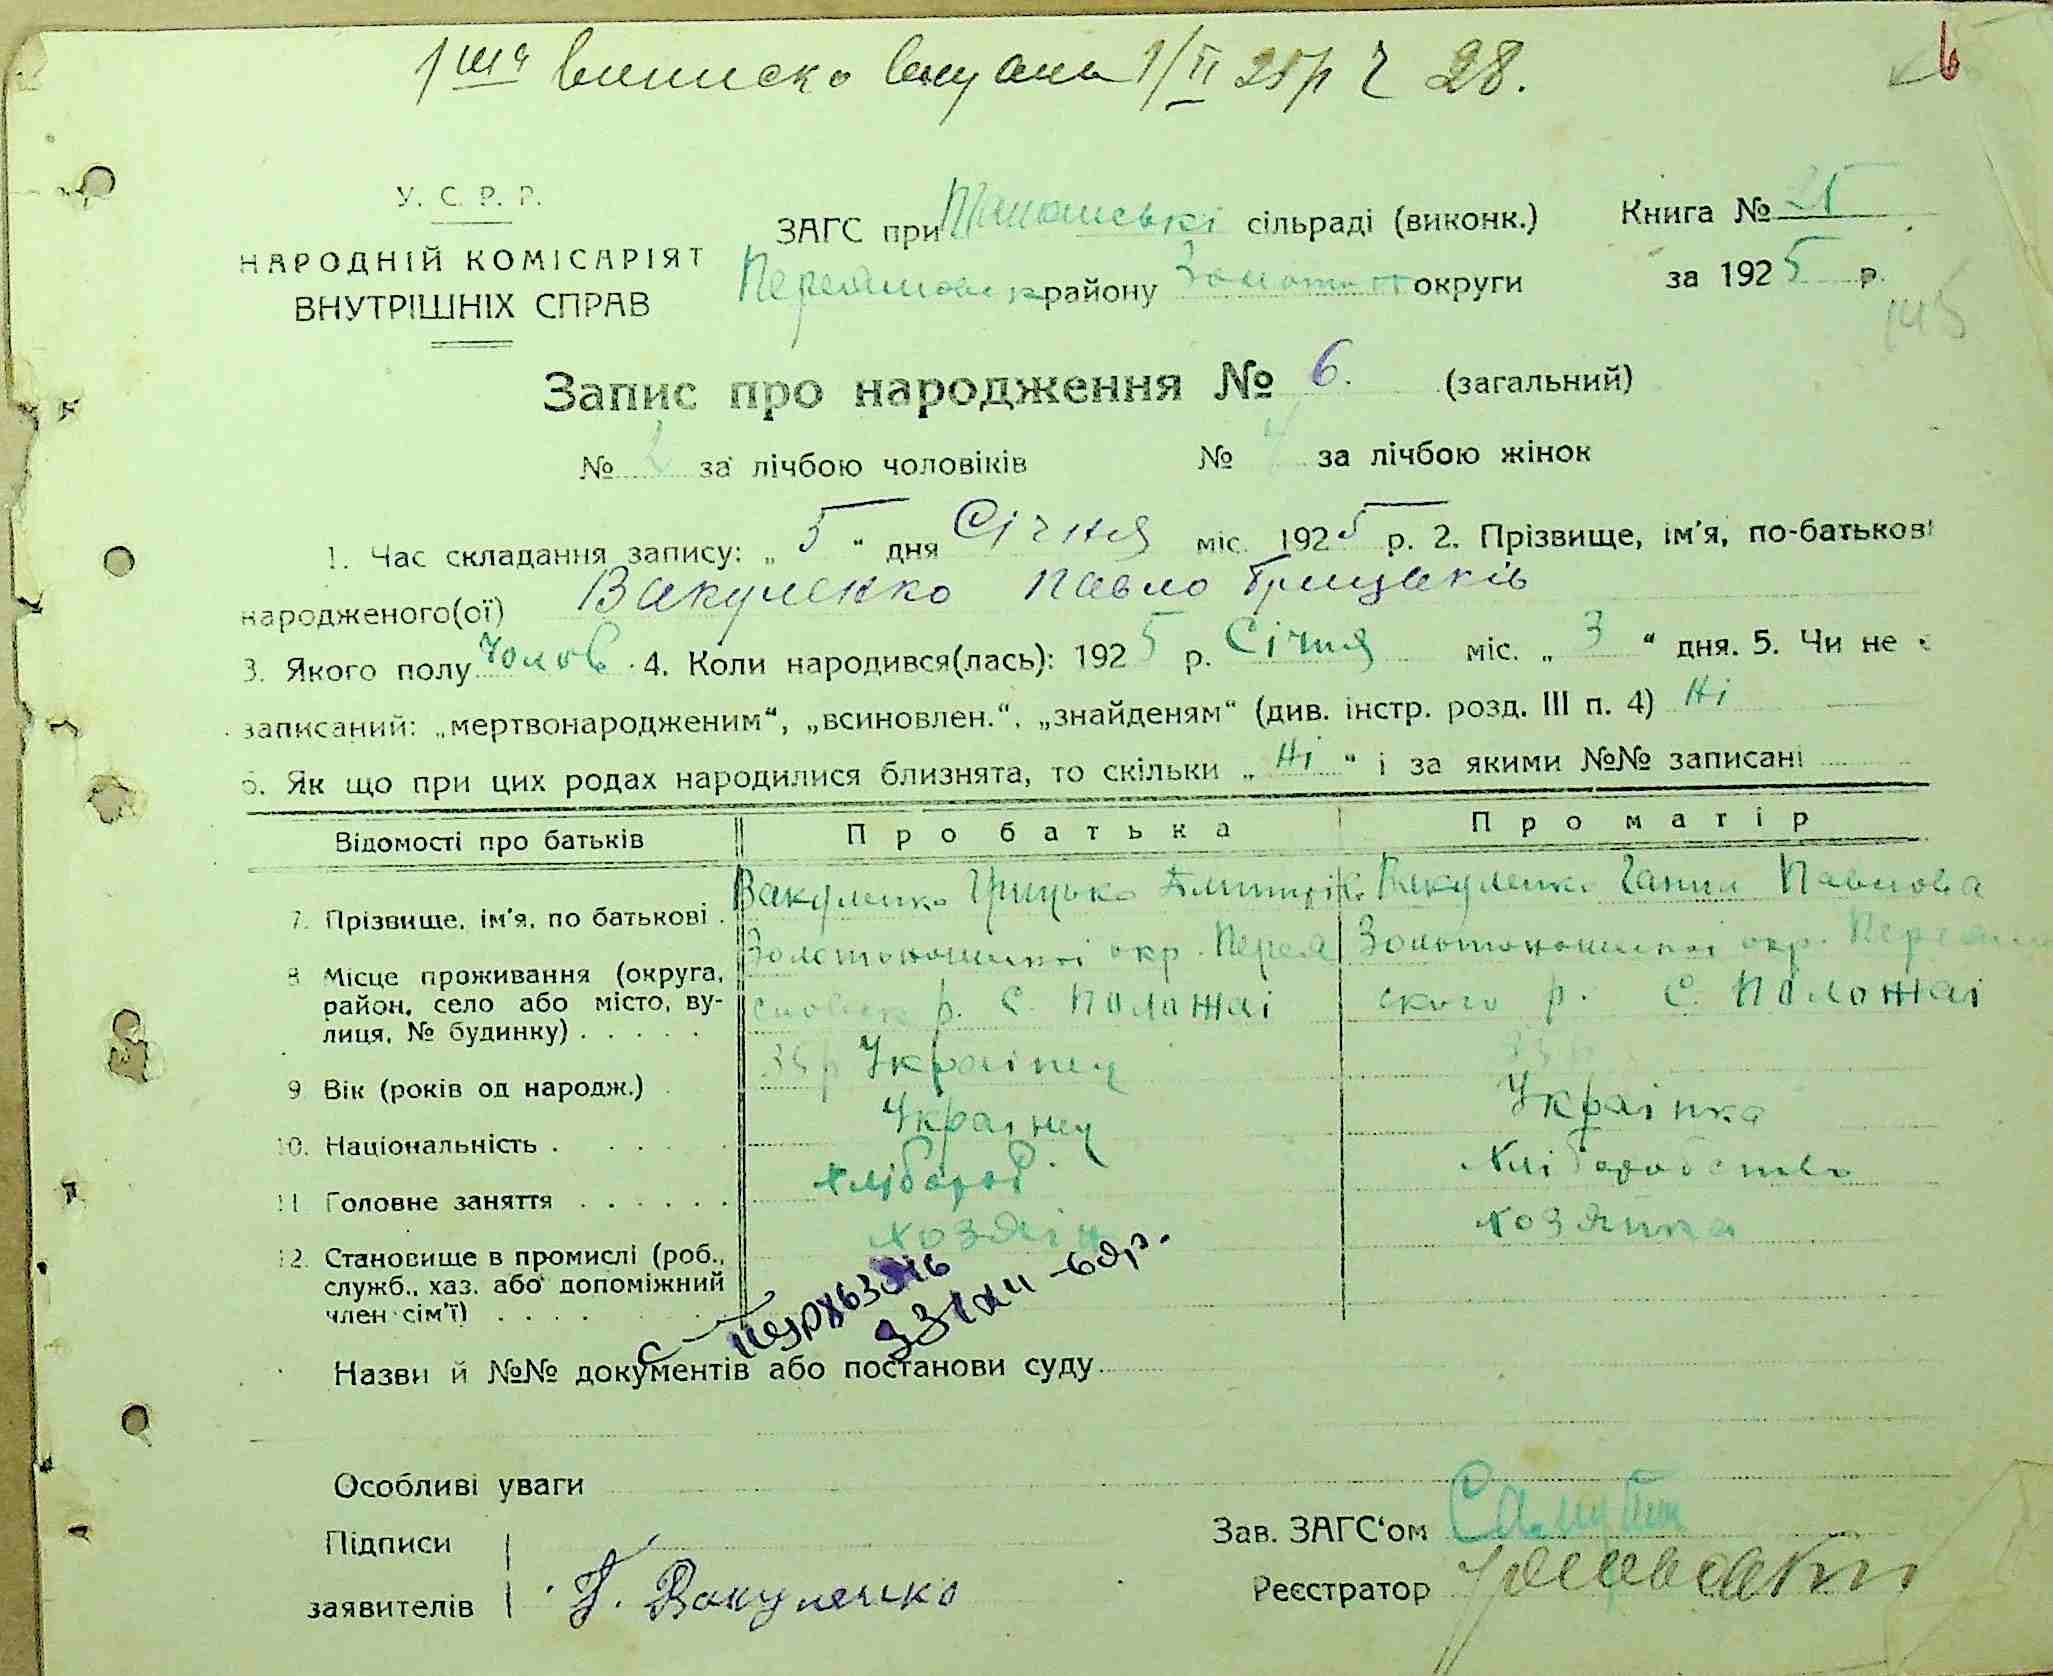 1/II 25р 28.
6
У. С. Р. Р.
НАРОДНІЙ КОМІСАРІЯТ
ВНУТРІШНІХ СПРАВ
ЗАГС при сільраді (виконк.)
району округи
Книга № 25
за 1925 р.
Запис про народження № 6. (загальний)
№ 2 за лічбою чоловіків № 4 за лічбою жінок
1. Час складання запису: „ 5 " дня Січня міс. 1925 р. 2. Прізвище, ім'я, по-батькові
народженого(ої) Вакуленко Павло Грицьків
3. Якого полу Чолов. 4. Коли народився(лась): 1925 р. Січня міс. „ 3 " дня. 5. Чи не є
записаний: „мертвонародженим", „всиновлен.", „знайденям" (див. інстр. розд. III п. 4) Ні
6. Як що при цих родах народилися близнята, то скільки „ Ні " і за якими №№ записані
Відомості про батьків Про батька Про матір
7. Прізвище, ім'я, по батькові . Вакуленко Грицько Вакуленко Ганна Павлова
8 Місце проживання (округа, район, село або місто, ву-
лиця, № будинку) . . . . .
Золотоношської окр. Перея
р. С. Положаі
Золотоношської окр.
ского р. С. Положаі
9 Вік (років од народж.) . Українец
10. Національність . Українец Українка
11 Головне заняття . . . . . . Хлібороб Хліборобство
12. Становище в промислі (роб., служб., хаз. або допоміжний
член сім'ї) . . . .
Хозяін Хозяйка
Назви й №№ документів або постанови суду
Особливі уваги
Підписи
заявителів Г. Вакуленко
Зав. ЗАГС'ом
Реєстратор